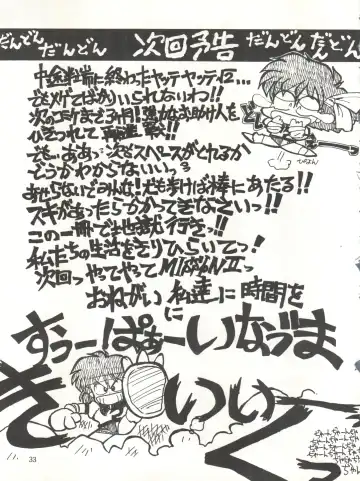 だんどん だんどん 次回予告 だんどん だんどん
中途半端に終わったヤッテヤッテ12…
でもメゲてばかりいられないわ!!
次のコミケまで3ヶ月!強力なお助け人を
ひきつれて再
でも…ああっ次もスペースがとれるか
どうかわからないっっ
おせらないでみんな!犬も歩けば棒にあたる!!
スキがあったらかかってきなさいっ!!
この一冊で地獄行きっ!!
私たちの生活をきりひらいてっ!
次回っやってやってMISSION IIっ
おねがい私達に時間を
すうーぱぁーいなづま
きいいっく
33